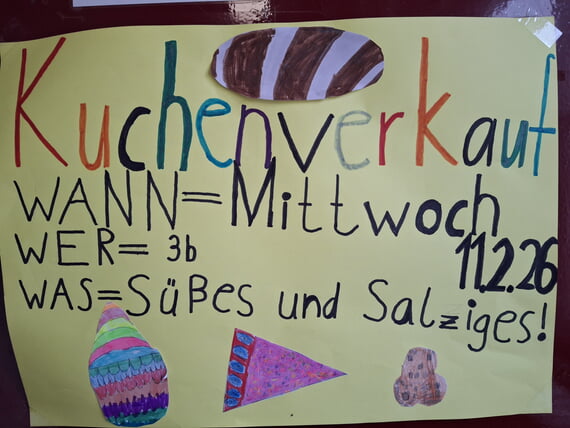 Kuchenverkauf
WANN=Mittwoch
11.2.26
WER= 3b
WAS=Süßes und Salziges!